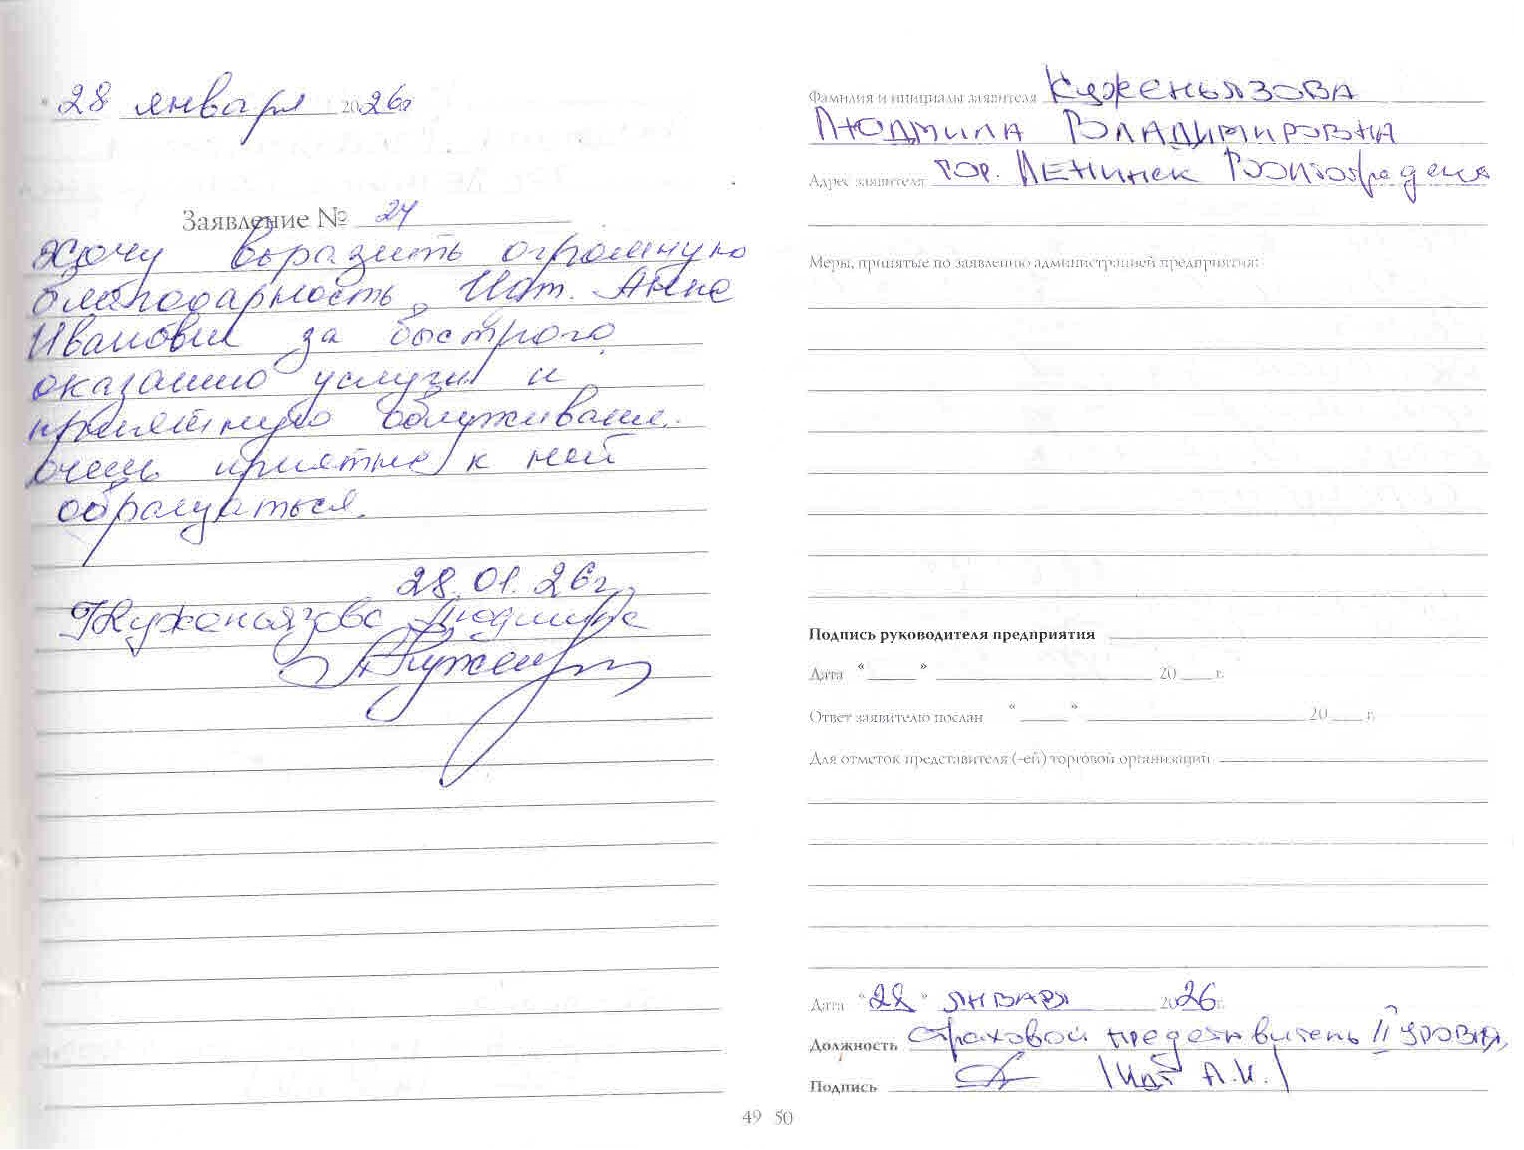 28 января 2026г
Заявление № 24
Хочу выразить огромную
благодарность Идт. Анне
Ивановы за быстрого
оказанию услуги и
приятную облуживание.
очень приятно к ней
обращаться.
28.01.26г.
Куженьязова Людмила
Фамилия и инициалы заявителя Куженьязова
Людмила Владимировна
Адрес заявителя гор. Ленинск
Меры, принятые по заявлению администрацией предприятия:
Подпись руководителя предприятия
Дата “ ” 20 г.
Ответ заявителю послан “ ” 20 г.
Для отметок представителя (-ей) торговой организации
Дата “28” января 2026г.
Должность страховой представитель II уровня,
Подпись |Идт А.И.|
49 50